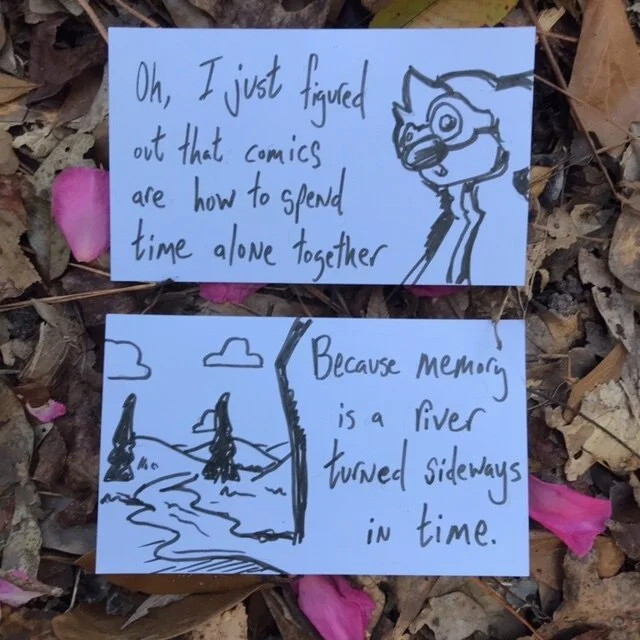 Oh, I just figured
out that comics
are how to spend
time alone together
Because memory
is a river
turned sideways
in time.